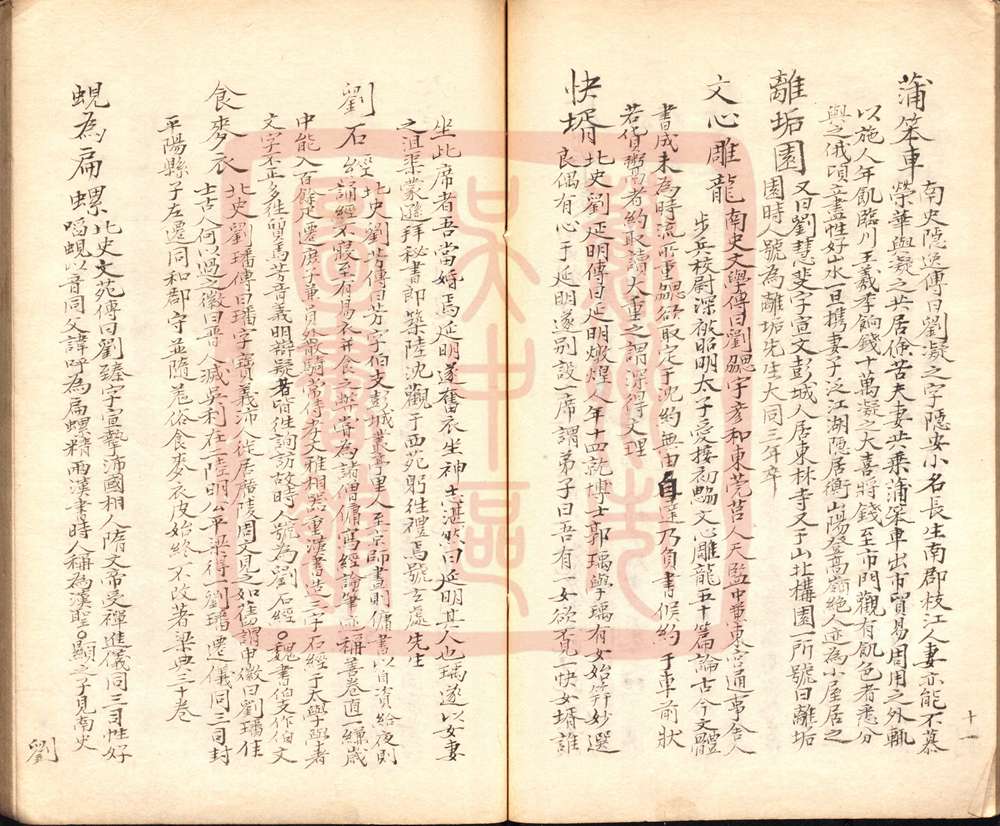 蒲笨車 南史隱逸傳曰劉凝之字隱安小名長生南郡枝江人妻亦能不慕
榮華與凝之共居儉苦夫妻共乘蒲笨車出市貿易周用之外輒
以施人年飢臨川王義季餉錢十萬凝之大喜將錢至市門觀有飢色者悉分
與之俄頃立盡性好山水一旦携妻子泛江湖隱居衡山陽登高嶺絕人迹為小屋居之
離垢園 又曰劉慧斐字宣文彭城人居東林寺又于山北構園一所號曰離垢
園時人號為離垢先生大同三年卒
文心雕龍 南史文學傳曰劉勰字彥和東莞莒人天監中兼東宮通事舍人
步兵校尉深被昭明太子愛接初勰文心雕龍五十篇論古今文體
書成未為時流所重勰欲取定于沈約無由自達乃負書候約于車前狀
若貨鬻者約取讀大重之謂深得文理
快壻 北史劉延明傳曰延明燉煌人年十四就博士郭瑀學瑀有女始笄妙選
良偶有心于延明遂别設一席謂弟子曰吾有一女欲覓一快女壻誰
坐此席者吾當婚焉延明遂奮衣坐神志湛然曰延明其人也瑀遂以女妻
之沮渠蒙遜拜秘書郎築陸沈觀于西苑躬往禮焉號玄處先生
劉石經 北史劉芳傳曰芳字伯支彭城叢亭里人至京師晝則傭書以自資給夜則
誦經不寢至有易衣并食之弊常為諸僧傭寫經論筆迹稱善卷直一縑歲
中能入百餘疋遷庶子兼員外散騎常侍孝文雅相器重漢書造三字石經于太學學者
文字不正多往質焉芳音義明辯疑者皆往詢訪故時人號為劉石經○魏書伯支作伯文
食麥衣 北史劉璠傳曰璠字寶義沛人徙居廣陵周文見之如舊謂申徽曰劉璠佳
士古人何以過之徽曰晋人滅吳利在二陸明公平梁得一劉璠遷儀同三司封
平陽縣子左遷同和郡守並隨羌俗食麥衣皮始終不改著梁典三十卷
蜆為扁螺 北史文苑傳曰劉臻字宣摯沛國相人隋文帝受禪進儀同三司性好
啗蜆以音同父諱呼為扁螺精兩漢書時人稱為漢聖○顯之子見南史
劉
十一